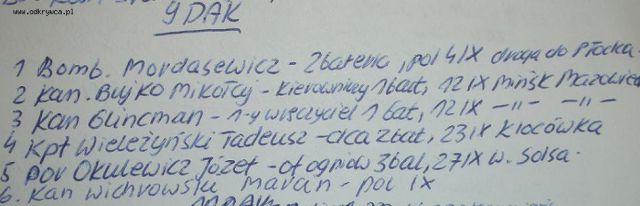 www.odkrywca.pl
9 DAK
1 Bomb. Mordasewicz - 2 bateria, pol 4 IX droga do Płocka.
2 Kan. Bujko Mikołaj - kierowniczy 1 bat, 12 IX Mińsk Mazowiec
3 Kan Glincman - 1-y wręczyciel 1 bat, 12 IX —"— —"—
4 Kpt Wieleżyński Tadeusz - dca 2 bat, 23 IX Krocówka
5 Por Okulewicz Józef - of ogniow 3 bat, 27 IX w. Solsa.
6. Kan Wichrowski Marian - pol IX